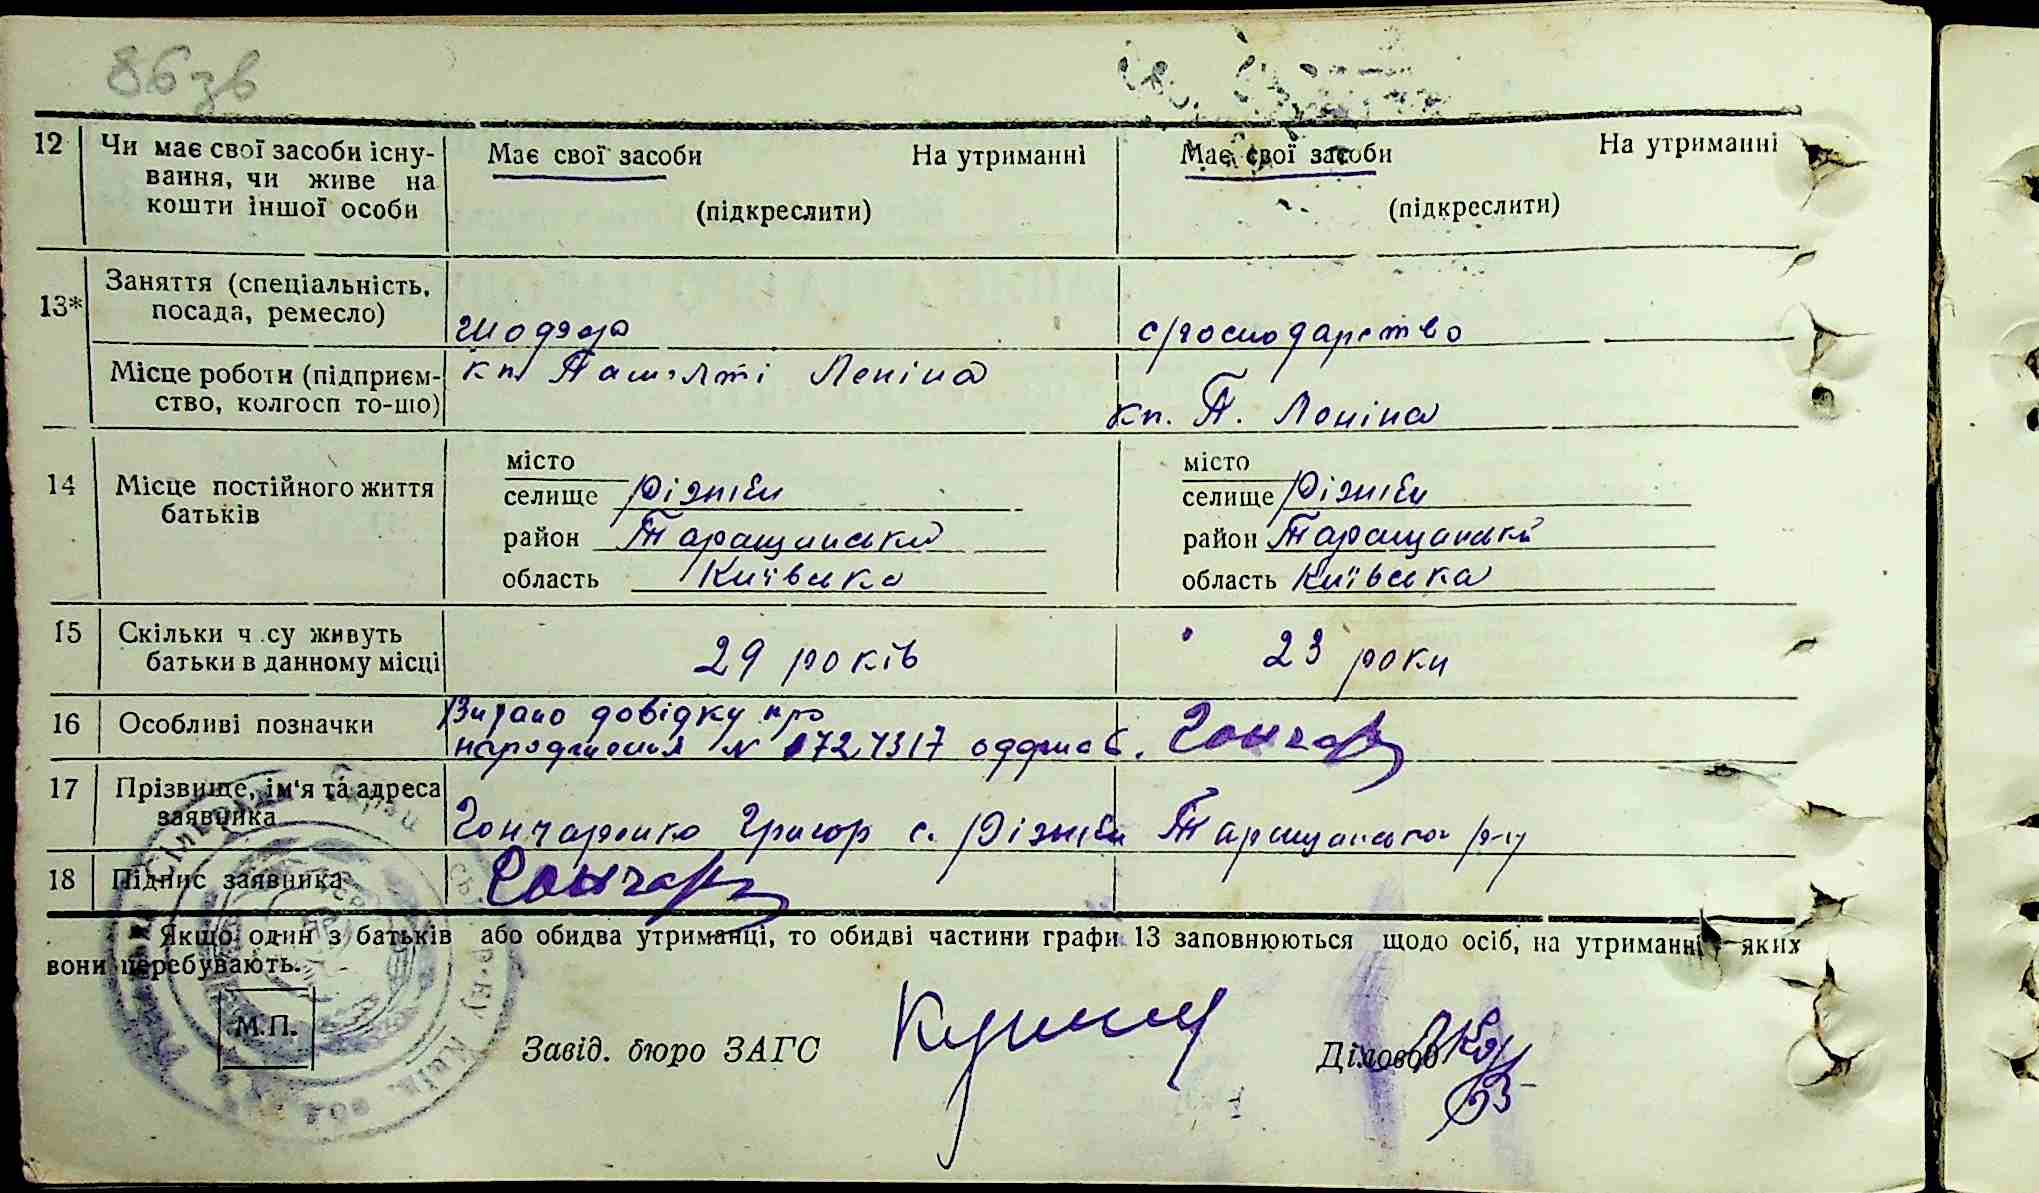 86 зв
12 Чи має свої засоби існу- Має свої засоби На утриманні Має свої засоби На утриманні
вання, чи живе на
кошти іншої особи (підкреслити) (підкреслити)
13* Заняття (спеціальність,
посада, ремесло) с/господарство
Місце роботи (підприєм- кп. Пам'яті Леніна
ство, колгосп то-що) кп. П. Леніна
місто місто
14 Місце постійного життя селище Різніки селище Різніки
батьків район Таращанський район Таращанський
область Київська область Київська
15 Скільки ч су живуть 29 років 23 роки
батьки в данному місці
16 Особливі позначки Видано довідку про
народження № 1724317 одержав. Гончар
17 Прізвище, ім'я та адреса
заявника Гончаренко Григор с. Різніки Таращанського р-ну
18 Підпис заявника Гончар
Якщо один з батьків або обидва утриманці, то обидві частини графи 13 заповнюються щодо осіб, на утриманні яких
вони перебувають.
М.П.
Завід. бюро ЗАГС Діловод